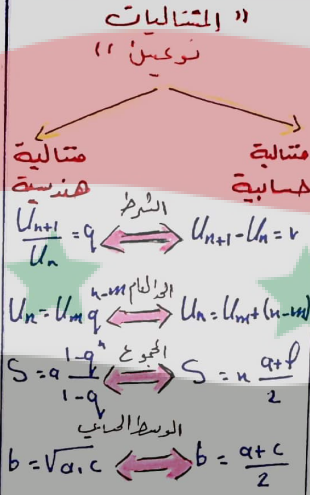 " المتتاليات
نوعين "
متتالية حسابية
متتالية هندسية
الشرط
U_{n+1} - U_n = r
\frac{U_{n+1}}{U_n} = q
الحد العام
U_n = U_m + (n-m)
U_n = U_m q^{n-m}
المجموع
S = n \frac{a+l}{2}
S = a \frac{1-q^n}{1-q}
الوسط الحسابي
b = \frac{a+c}{2}
b = \sqrt{a.c}